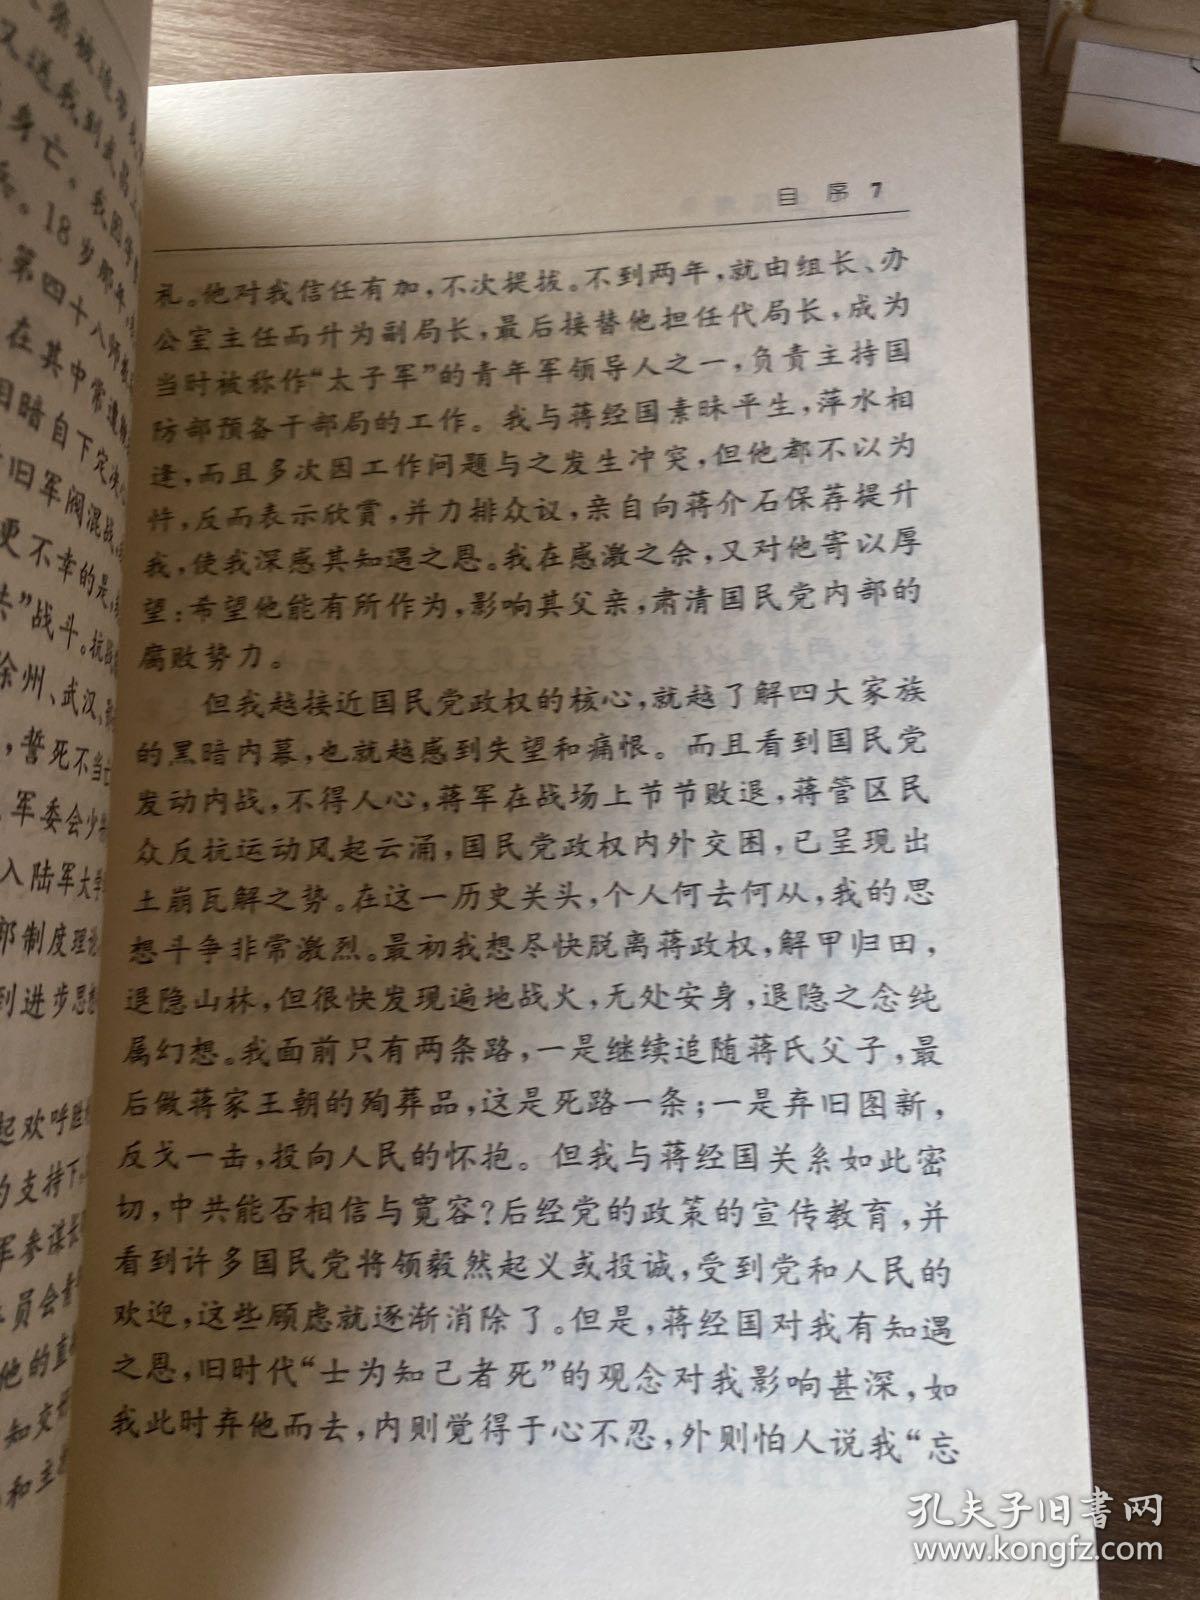 自 序 7
礼。他对我信任有加，不次提拔。不到两年，就由组长、办
公室主任而升为副局长，最后接替他担任代局长，成为
当时被称作“太子军”的青年军领导人之一，负责主持国
防部预备干部局的工作。我与蒋经国素昧平生，萍水相
逢，而且多次因工作问题与之发生冲突，但他都不以为
忤，反而表示欣赏，并力排众议，亲自向蒋介石保荐提升
我，使我深感其知遇之恩。我在感激之余，又对他寄以厚
望：希望他能有所作为，影响其父亲，肃清国民党内部的
腐败势力。
但我越接近国民党政权的核心，就越了解四大家族
的黑暗内幕，也就越感到失望和痛恨。而且看到国民党
发动内战，不得人心，蒋军在战场上节节败退，蒋管区民
众反抗运动风起云涌，国民党政权内外交困，已呈现出
土崩瓦解之势。在这一历史关头，个人何去何从，我的思
想斗争非常激烈。最初我想尽快脱离蒋政权，解甲归田，
退隐山林，但很快发现遍地战火，无处安身，退隐之念纯
属幻想。我面前只有两条路，一是继续追随蒋氏父子，最
后做蒋家王朝的殉葬品，这是死路一条；一是弃旧图新，
反戈一击，投向人民的怀抱。但我与蒋经国关系如此密
切，中共能否相信与宽容？后经党的政策的宣传教育，并
看到许多国民党将领毅然起义或投诚，受到党和人民的
欢迎，这些顾虑就逐渐消除了。但是，蒋经国对我有知遇
之恩，旧时代“士为知己者死”的观念对我影响甚深，如
我此时弃他而去，内则觉得于心不忍，外则怕人说我“忘
又送我到武昌
身亡。我因
。18岁那年，
第四十八师教
在其中常遭
暗自下定决
旧军阀混战，
更不幸的是，
”战斗。抗战
徐州、武汉、
，誓死不当亡
军委会少
入陆军大学
制度理论
到进步思想
起欢呼胜
的支持下，
军参谋长
员会青
他的直
知交
和主
孔夫子旧书网
www.kongfz.com